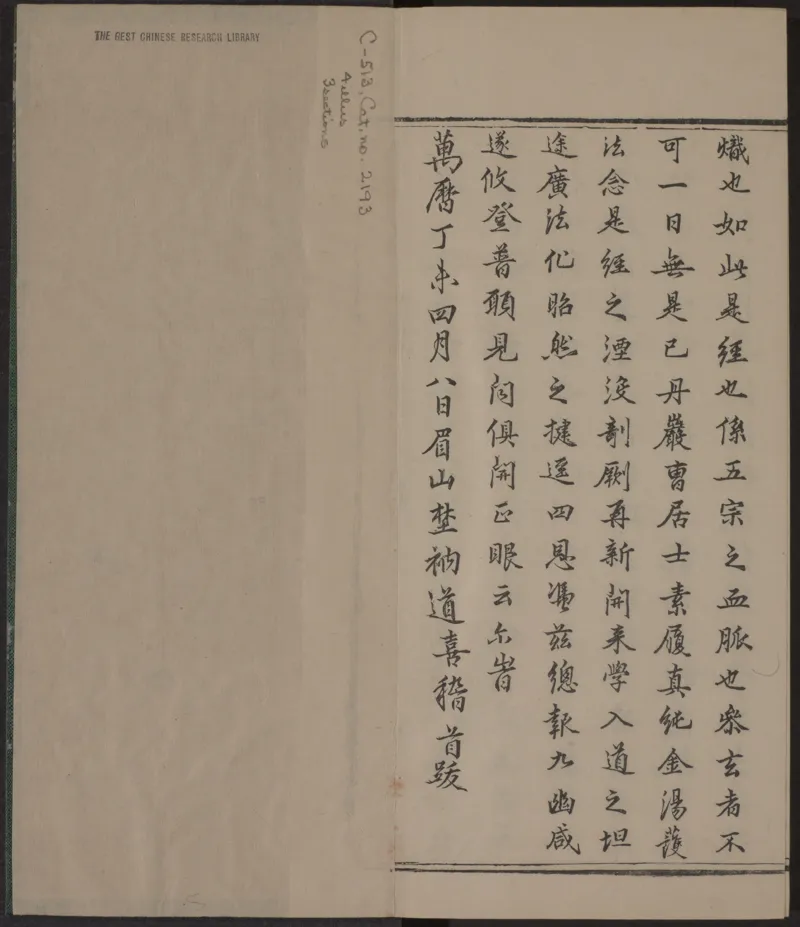 熾也如此是經也係五宗之血脈也叅玄者不
可一日無是已丹巖曹居士素履真純金湯護
法念是經之湮没剞劂再新開来學入道之坦
途廣法化昭然之揵逕四恩憑兹總報九幽咸
遂攸登普願見聞俱開正眼云尒旹
萬曆丁未四月八日眉山埜衲道喜稽首跋
THE GEST CHINESE RESEARCH LIBRARY
C-513, Cat. no. 2193
4 ellus
3 sections